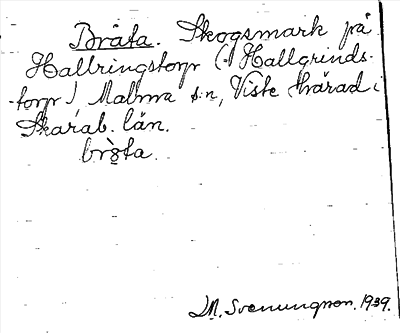 Bråta. Skogsmark på
Hallringstorp (-Hallgrinds-
-torp), Malma s:n, Viste härad i
Skarab. län.
brǫ̀ta.
M. Svenungson. 1939.